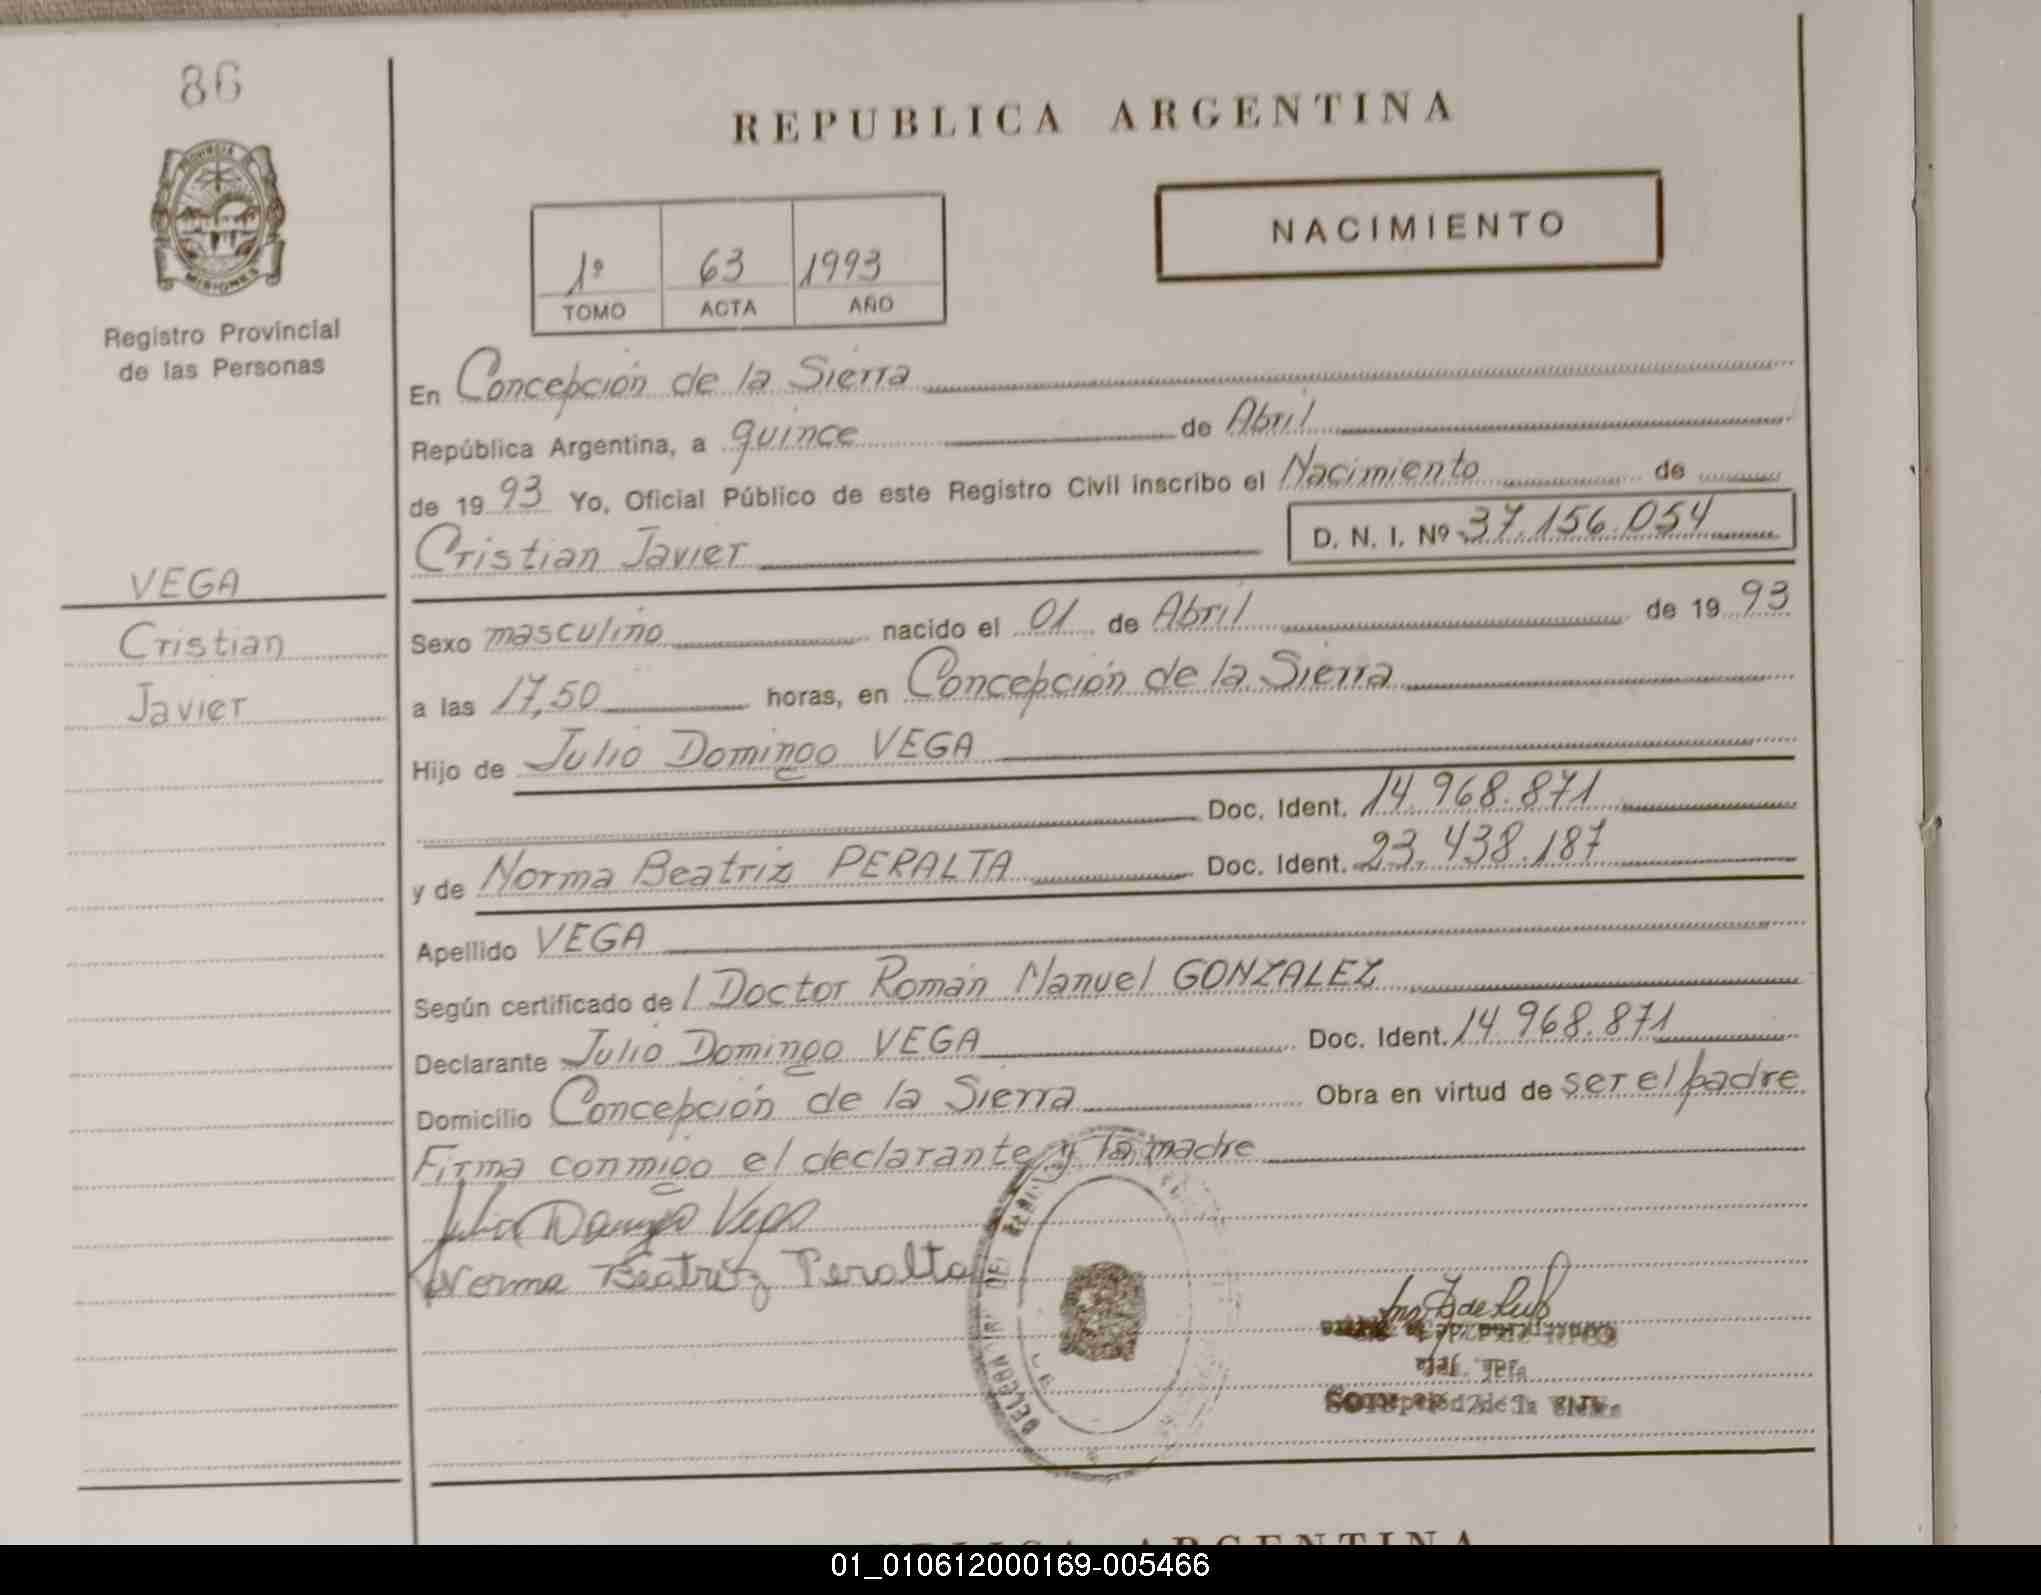 86
PROVINCIA
MISIONES
Registro Provincial
de las Personas
VEGA
Cristian
Javier
REPUBLICA ARGENTINA
NACIMIENTO
1º 63 1993
TOMO ACTA AÑO
En Concepción de la Sierra
República Argentina, a quince de Abril
de 1993 Yo, Oficial Público de este Registro Civil inscribo el Nacimiento de
Cristian Javier D. N. I. Nº 37.156.054
Sexo masculino nacido el 01 de Abril de 1993
a las 17,50 horas, en Concepción de la Sierra
Hijo de Julio Domingo VEGA
Doc. Ident. 14.968.871
y de Norma Beatriz PERALTA Doc. Ident. 23.438.187
Apellido VEGA
Según certificado de l Doctor Román Manuel GONZALEZ
Declarante Julio Domingo VEGA Doc. Ident. 14.968.871
Domicilio Concepción de la Sierra Obra en virtud de ser el padre
Firma conmigo el declarante y la madre
Julio Domingo Vega
Norma Beatriz Peralta
ARGENTINA
01_010612000169-005466